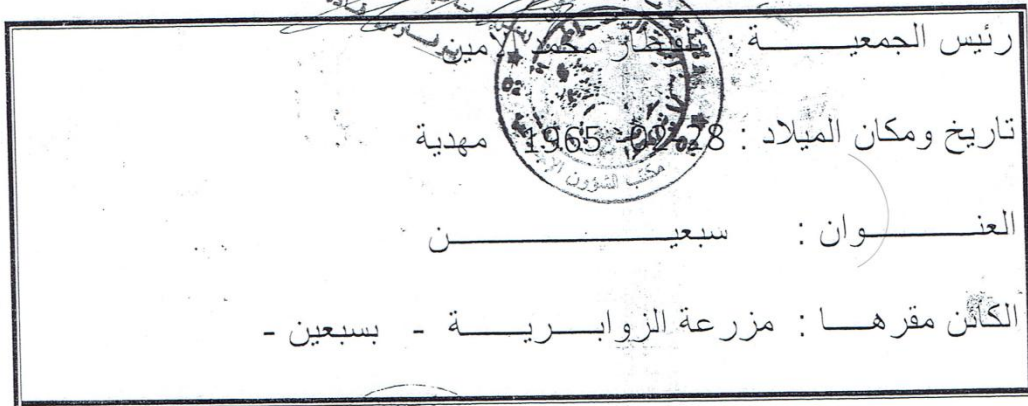 رئيس الجمعيـــــــة : بلقطار محمد الأمين
تاريخ ومكان الميلاد : 28-02-1965 مهدية
العنـــــــــوان : سبعيـــــــــــــــــــن
الكائن مقرهـــا : مزرعة الزوابـــريـــــة - بسبعين -
مكتب الشؤون